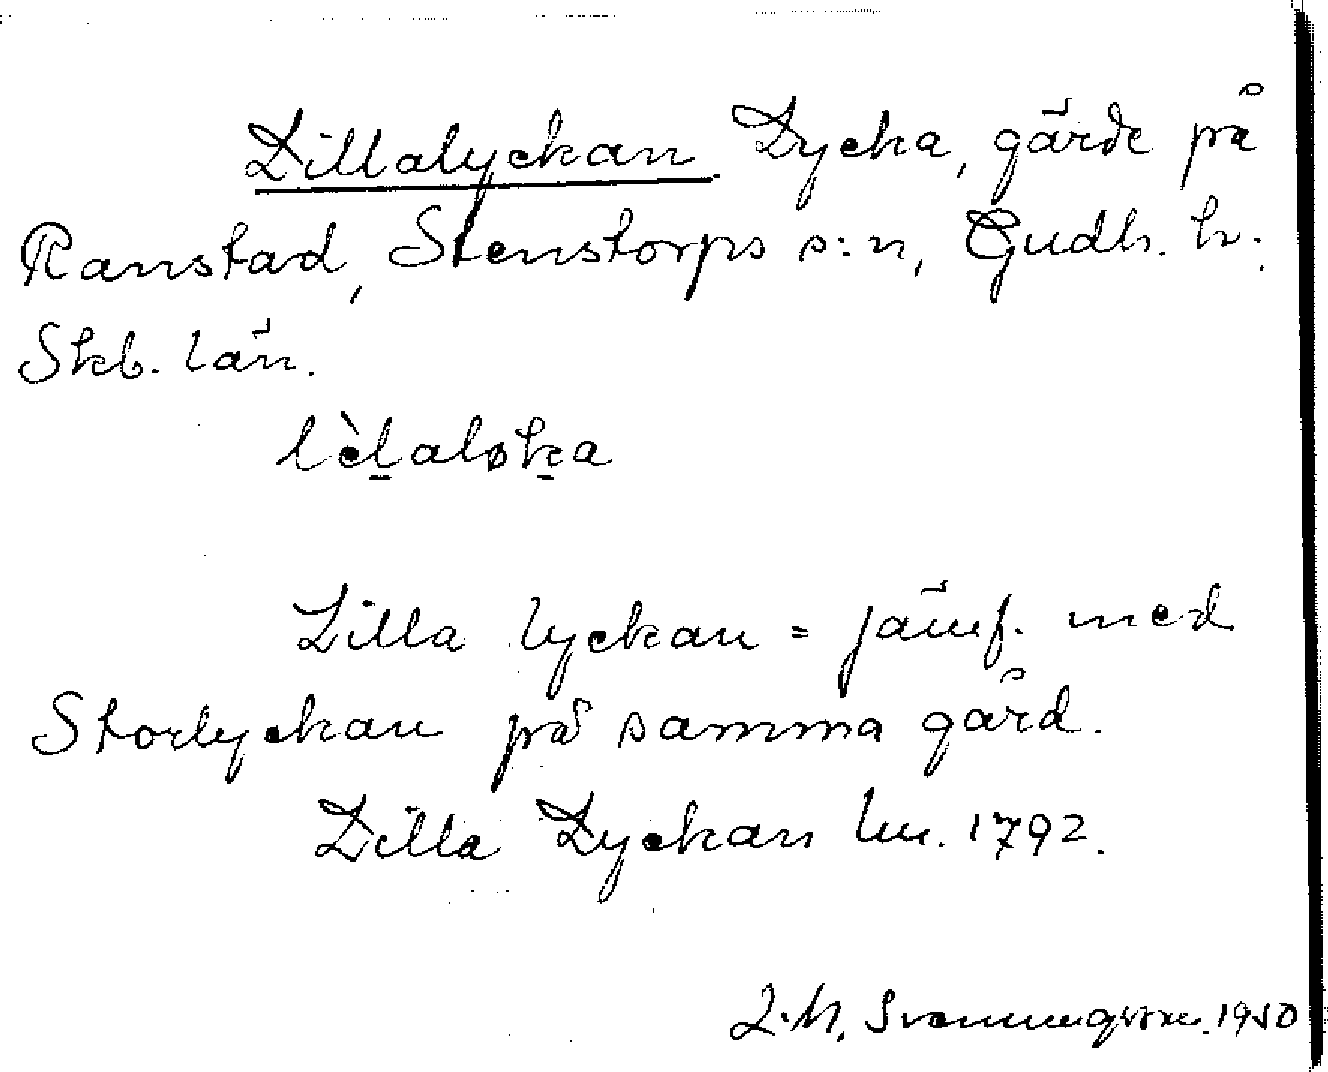 Lillalyckan. Lycka, gärde på
Ranstad, Stenstorps s:n, Gudh. h.
Skb. län.
lèlaløka
Lilla lyckan = jämf. med
Storlyckan på samma gård.
Lilla Lyckan lm. 1792.
L.M. Svanungsson. 1950